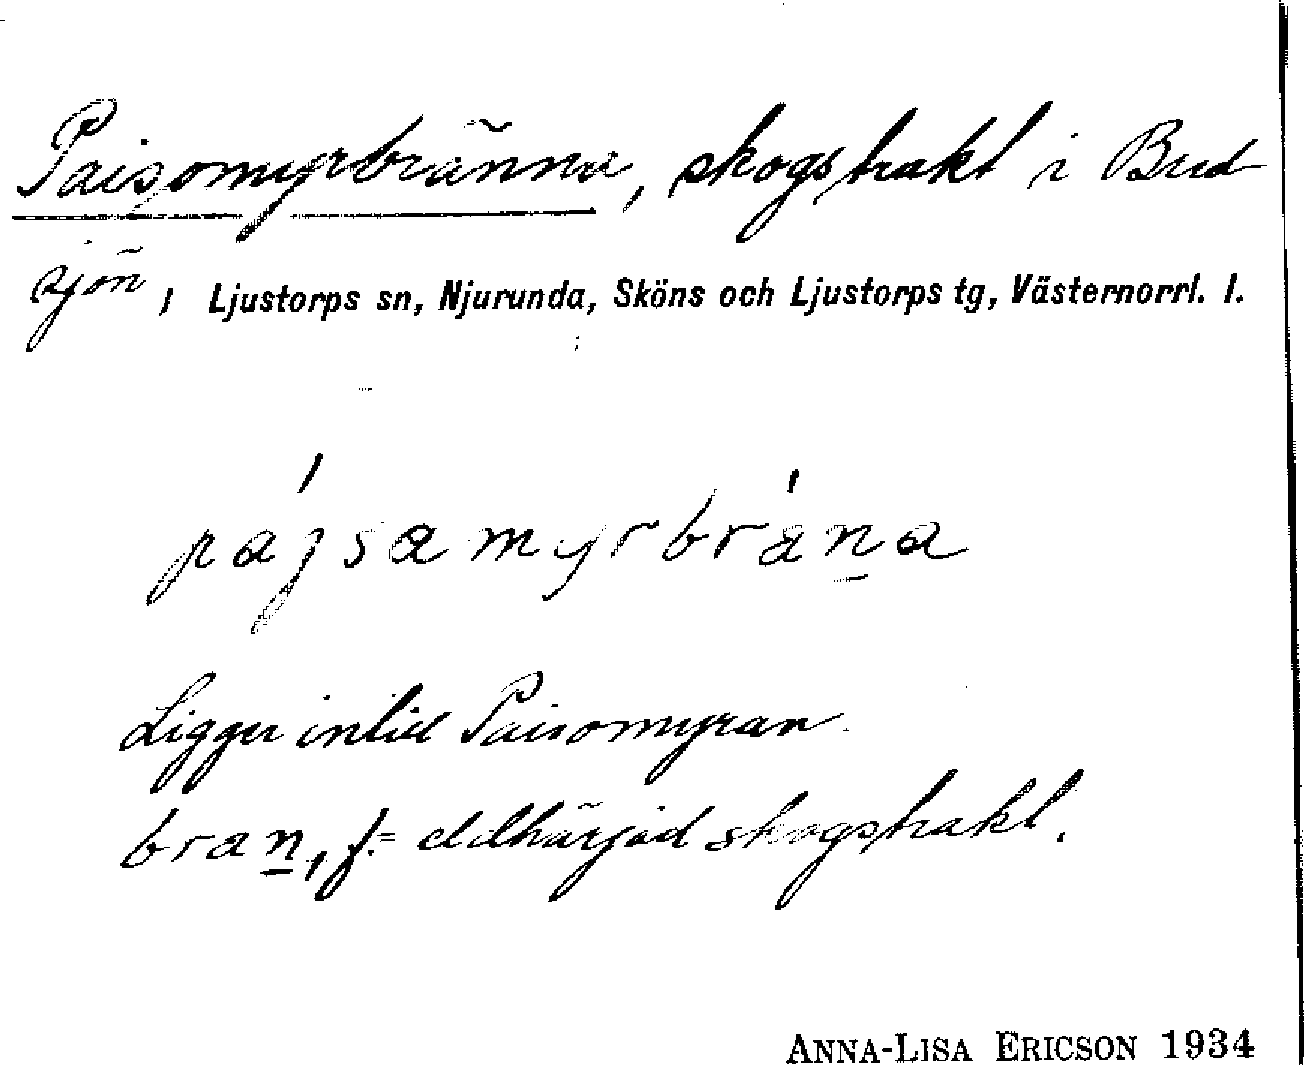 Paisomyrbränna, skogstrakt i Bred-
sjön, Ljustorps sn, Njurunda, Sköns och Ljustorps tg, Västernorrl. l.
pajsamyrbräna
Ligger intill Paisomyran.
bran, f. = eldhärjad skogstrakt.
ANNA-LISA ERICSON 1934